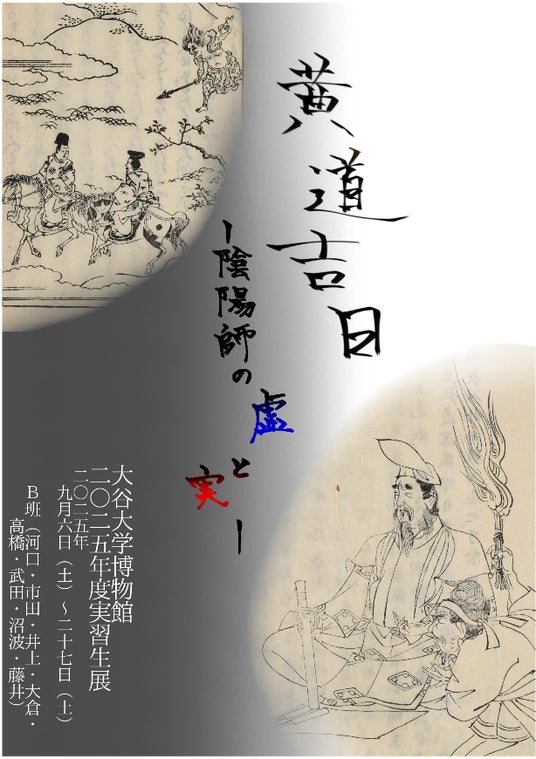 黄道吉日
ー陰陽師の虚と実ー
大谷大学博物館
二〇二五年度実習生展
二〇二五年
九月六日（土）～二十七日（土）
B班（河口・市田・井上・大倉・
高橋・武田・沼波・藤井）